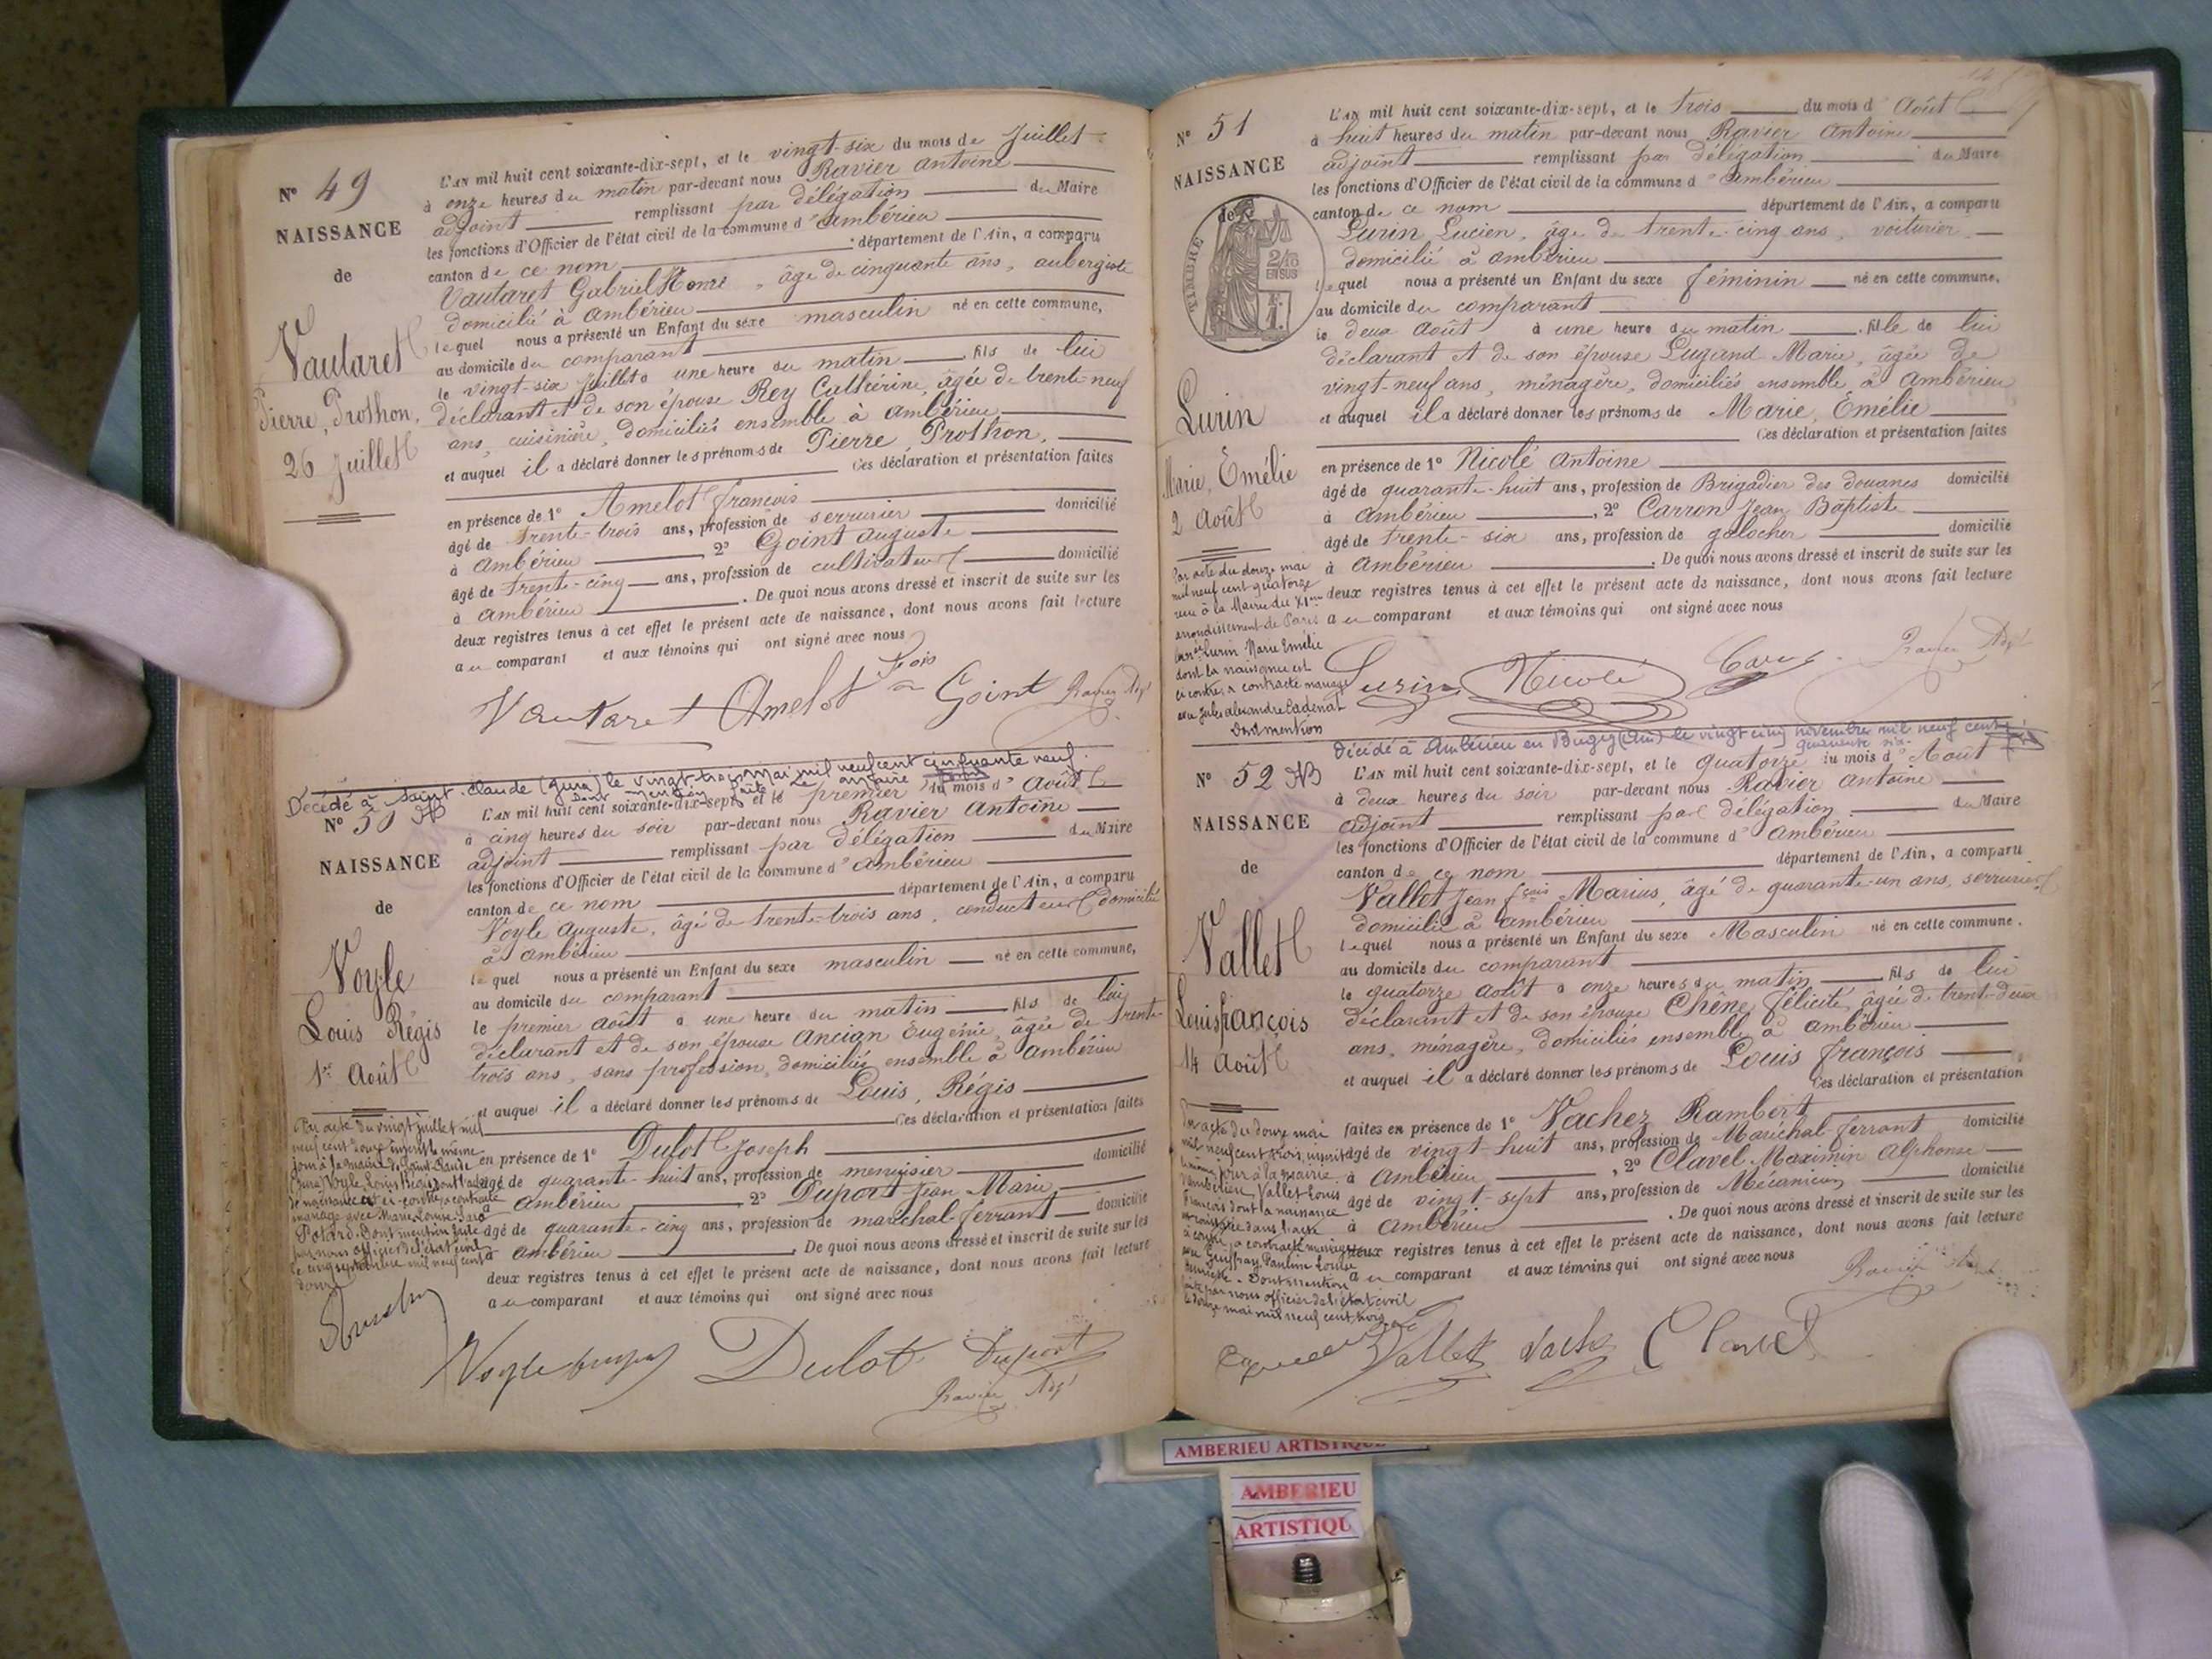 N° 49
NAISSANCE
de
Vautaret
Pierre, Prothon,
26 Juillet
L'AN mil huit cent soixante-dix-sept, et le vingt-six du mois de Juillet
à onze heures du matin par-devant nous Ravier Antoine
adjoint remplissant par délégation du Maire
les fonctions d'Officier de l'état civil de la commune d'Ambérieu
canton de ce nom département de l'Ain, a comparu
Vautaret Gabriel Honoré, âgé de cinquante ans, aubergiste
domicilié à Ambérieu
lequel nous a présenté un Enfant du sexe masculin né en cette commune,
au domicile du comparant
le vingt-six Juillet à une heure du matin fils de lui
déclarant et de son épouse Rey Cathérine, âgée de trente-neuf
ans, cuisinière, domiciliés ensemble à Ambérieu
et auquel il a déclaré donner les prénoms de Pierre, Prothon,
Ces déclaration et présentation faites
en présence de 1° Amelot françois
âgé de trente-trois ans, profession de serrurier domicilié
à Ambérieu 2° Goint Auguste
âgé de trente-cinq ans, profession de cultivateur domicilié
à Ambérieu. De quoi nous avons dressé et inscrit de suite sur les
deux registres tenus à cet effet le présent acte de naissance, dont nous avons fait lecture
au comparant et aux témoins qui ont signé avec nous
Vautaret Amelot Fois Goint Ravier Adj
Décédé à Saint-Claude (Jura) le vingt trois mai mil neuf cent cinquante neuf.
Dont mention faite Le Maire
N° 50
NAISSANCE
de
Voyle
Louis Régis
1er Août
L'AN mil huit cent soixante-dix-sept, et le premier du mois d'Août
à cinq heures du soir par-devant nous Ravier Antoine
adjoint remplissant par délégation du Maire
les fonctions d'Officier de l'état civil de la commune d'Ambérieu
canton de ce nom département de l'Ain, a comparu
Voyle Auguste, âgé de trente-trois ans, conducteur domicilié
à Ambérieu
lequel nous a présenté un Enfant du sexe masculin né en cette commune,
au domicile du comparant
le premier Août à une heure du matin fils de lui
déclarant et de son épouse Ancian Eugénie, âgée de trente-
trois ans, sans profession, domiciliés ensemble à Ambérieu
et auquel il a déclaré donner les prénoms de Louis, Régis
Ces déclaration et présentation faites
en présence de 1° Dulot Joseph domicilié
âgé de quarante-huit ans, profession de menuisier
à Ambérieu 2° Duport Jean Marie
âgé de quarante-cinq ans, profession de maréchal-ferrant domicilié
à Ambérieu. De quoi nous avons dressé et inscrit de suite sur les
deux registres tenus à cet effet le présent acte de naissance, dont nous avons fait lecture
au comparant et aux témoins qui ont signé avec nous
Par acte du vingt juillet mil
neuf cent douze inscrit le même
jour à la mairie de Saint-Claude
(Jura) Voyle Louis Régis dont l'acte
de naissance est ci-contre a contracté
mariage avec Marie Louise
Potard. Dont mention faite
par nous officier de l'état civil
le cinq septembre mil neuf cent
douze
Voyle Dulot Duport
Ravier Adj
N° 51
NAISSANCE
de
TIMBRE
2/10
EN SUS
Lurin
Marie, Émélie
2 Août
L'AN mil huit cent soixante-dix-sept, et le trois du mois d'Août
à huit heures du matin par-devant nous Ravier Antoine
adjoint remplissant par délégation du Maire
les fonctions d'Officier de l'état civil de la commune d'Ambérieu
canton de ce nom département de l'Ain, a comparu
Lurin Lucien, âgé de trente-cinq ans, voiturier,
domicilié à Ambérieu
lequel nous a présenté un Enfant du sexe féminin né en cette commune,
au domicile du comparant
le deux Août à une heure du matin fille de lui
déclarant et de son épouse Lugand Marie, âgée de
vingt-neuf ans, ménagère, domiciliés ensemble à Ambérieu
et auquel il a déclaré donner les prénoms de Marie, Émélie
Ces déclaration et présentation faites
en présence de 1° Nicolé Antoine
âgé de quarante-huit ans, profession de Brigadier des douanes domicilié
à Ambérieu, 2° Carron Jean Baptiste
âgé de trente-six ans, profession de galocher domicilié
à Ambérieu. De quoi nous avons dressé et inscrit de suite sur les
deux registres tenus à cet effet le présent acte de naissance, dont nous avons fait lecture
au comparant et aux témoins qui ont signé avec nous
Par acte du douze mai
mil neuf cent quatorze
reçu à la Mairie du XIme
arrondissement de Paris
Lurin Marie Emélie
dont la naissance est
ci contre, a contracté mariage
avec Jules Alexandre Cadenat
Dont mention
Lurin Nicolé Caron Ravier Adj
Décédé à Ambérieu en Bugey (Ain) le vingt cinq novembre mil neuf cent
quarante six
N° 52
NAISSANCE
de
Vallet
Louis françois
14 Août
L'AN mil huit cent soixante-dix-sept, et le quatorze du mois d'Août
à deux heures du soir par-devant nous Ravier Antoine
adjoint remplissant par délégation du Maire
les fonctions d'Officier de l'état civil de la commune d'Ambérieu
canton de ce nom département de l'Ain, a comparu
Vallet Jean fçois Marius, âgé de quarante-un ans, serrurier
domicilié à Ambérieu
lequel nous a présenté un Enfant du sexe Masculin né en cette commune,
au domicile du comparant
le quatorze Août à onze heures du matin fils de lui
déclarant et de son épouse Chêne félicité, âgée de trente-deux
ans, ménagère, domiciliés ensemble à Ambérieu
et auquel il a déclaré donner les prénoms de Louis françois
Ces déclaration et présentation
faites en présence de 1° Vachez Rambert domicilié
âgé de vingt-huit ans, profession de Maréchal ferrant
à Ambérieu, 2° Clavel Maximin Alphonse
âgé de vingt-sept ans, profession de Mécanicien domicilié
à Ambérieu. De quoi nous avons dressé et inscrit de suite sur les
deux registres tenus à cet effet le présent acte de naissance, dont nous avons fait lecture
au comparant et aux témoins qui ont signé avec nous
Par acte du douze mai
mil neuf cent trois, inscrit
le même jour à la mairie
d'Ambérieu, Vallet Louis
François dont la naissance
est constatée dans l'acte
ci-contre, a contracté mariage
avec Geoffray Pauline Louise
Henriette. Dont mention
faite par nous officier de l'état civil
le douze mai mil neuf cent trois
Vallet Clavel
AMBERIEU ARTISTIQUE
AMBERIEU
ARTISTIQU